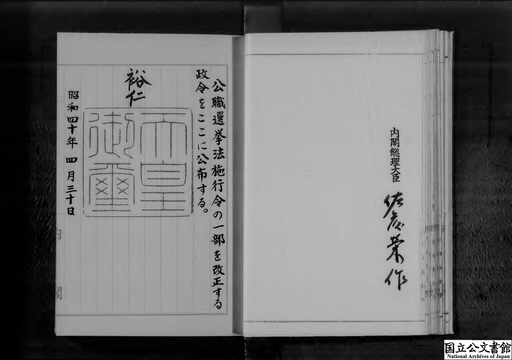 内閣総理大臣
佐藤栄作
公職選挙法施行令の一部を改正する
政令をここに公布する。
裕仁
天皇
御璽
昭和四十年四月三十日
国立公文書館
National Archives of Japan